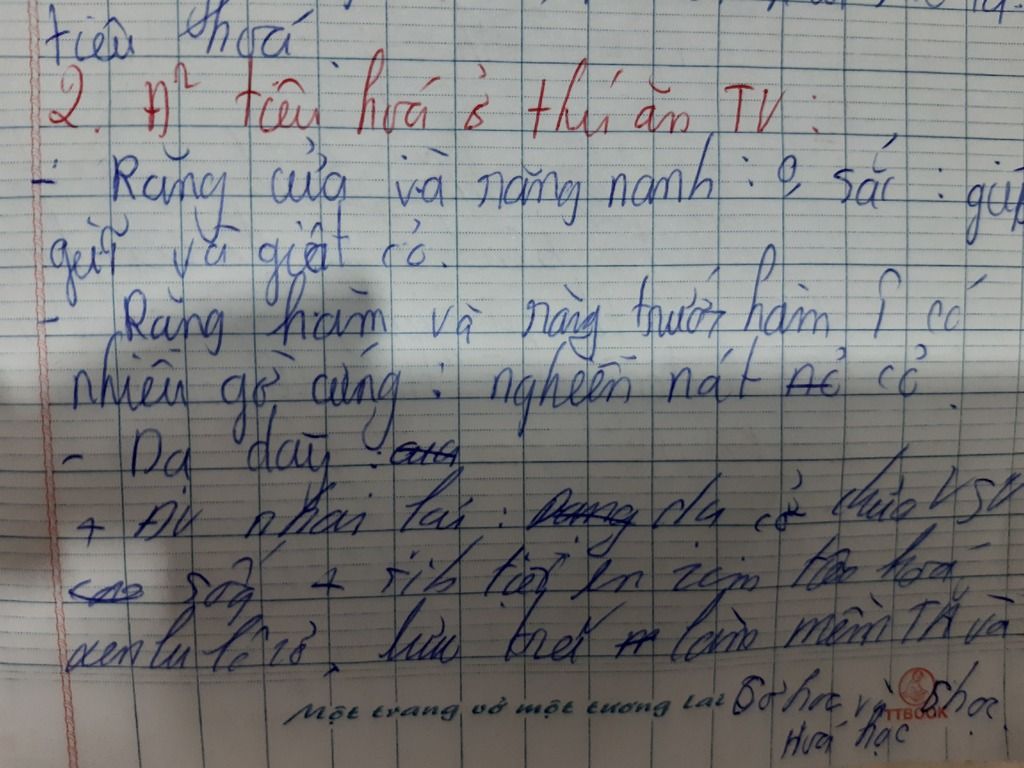 tiêu hoá
2. Đ² tiêu hoá ở thú ăn TV:
- Răng cửa và răng nanh: sắc: giúp
giữ và giật cỏ.
- Răng hàm và răng trước hàm có
nhiều gờ cứng: nghiền nát cỏ.
- Dạ dày:
+ ĐV nhai lại: dạ cỏ chứa VSV
sống + tiết en zim tiêu hoá
xenlulôzơ, lưu trữ làm mềm TĂ và
Một trang vở một tương lai
TTBOOK
học và học
Hoá học